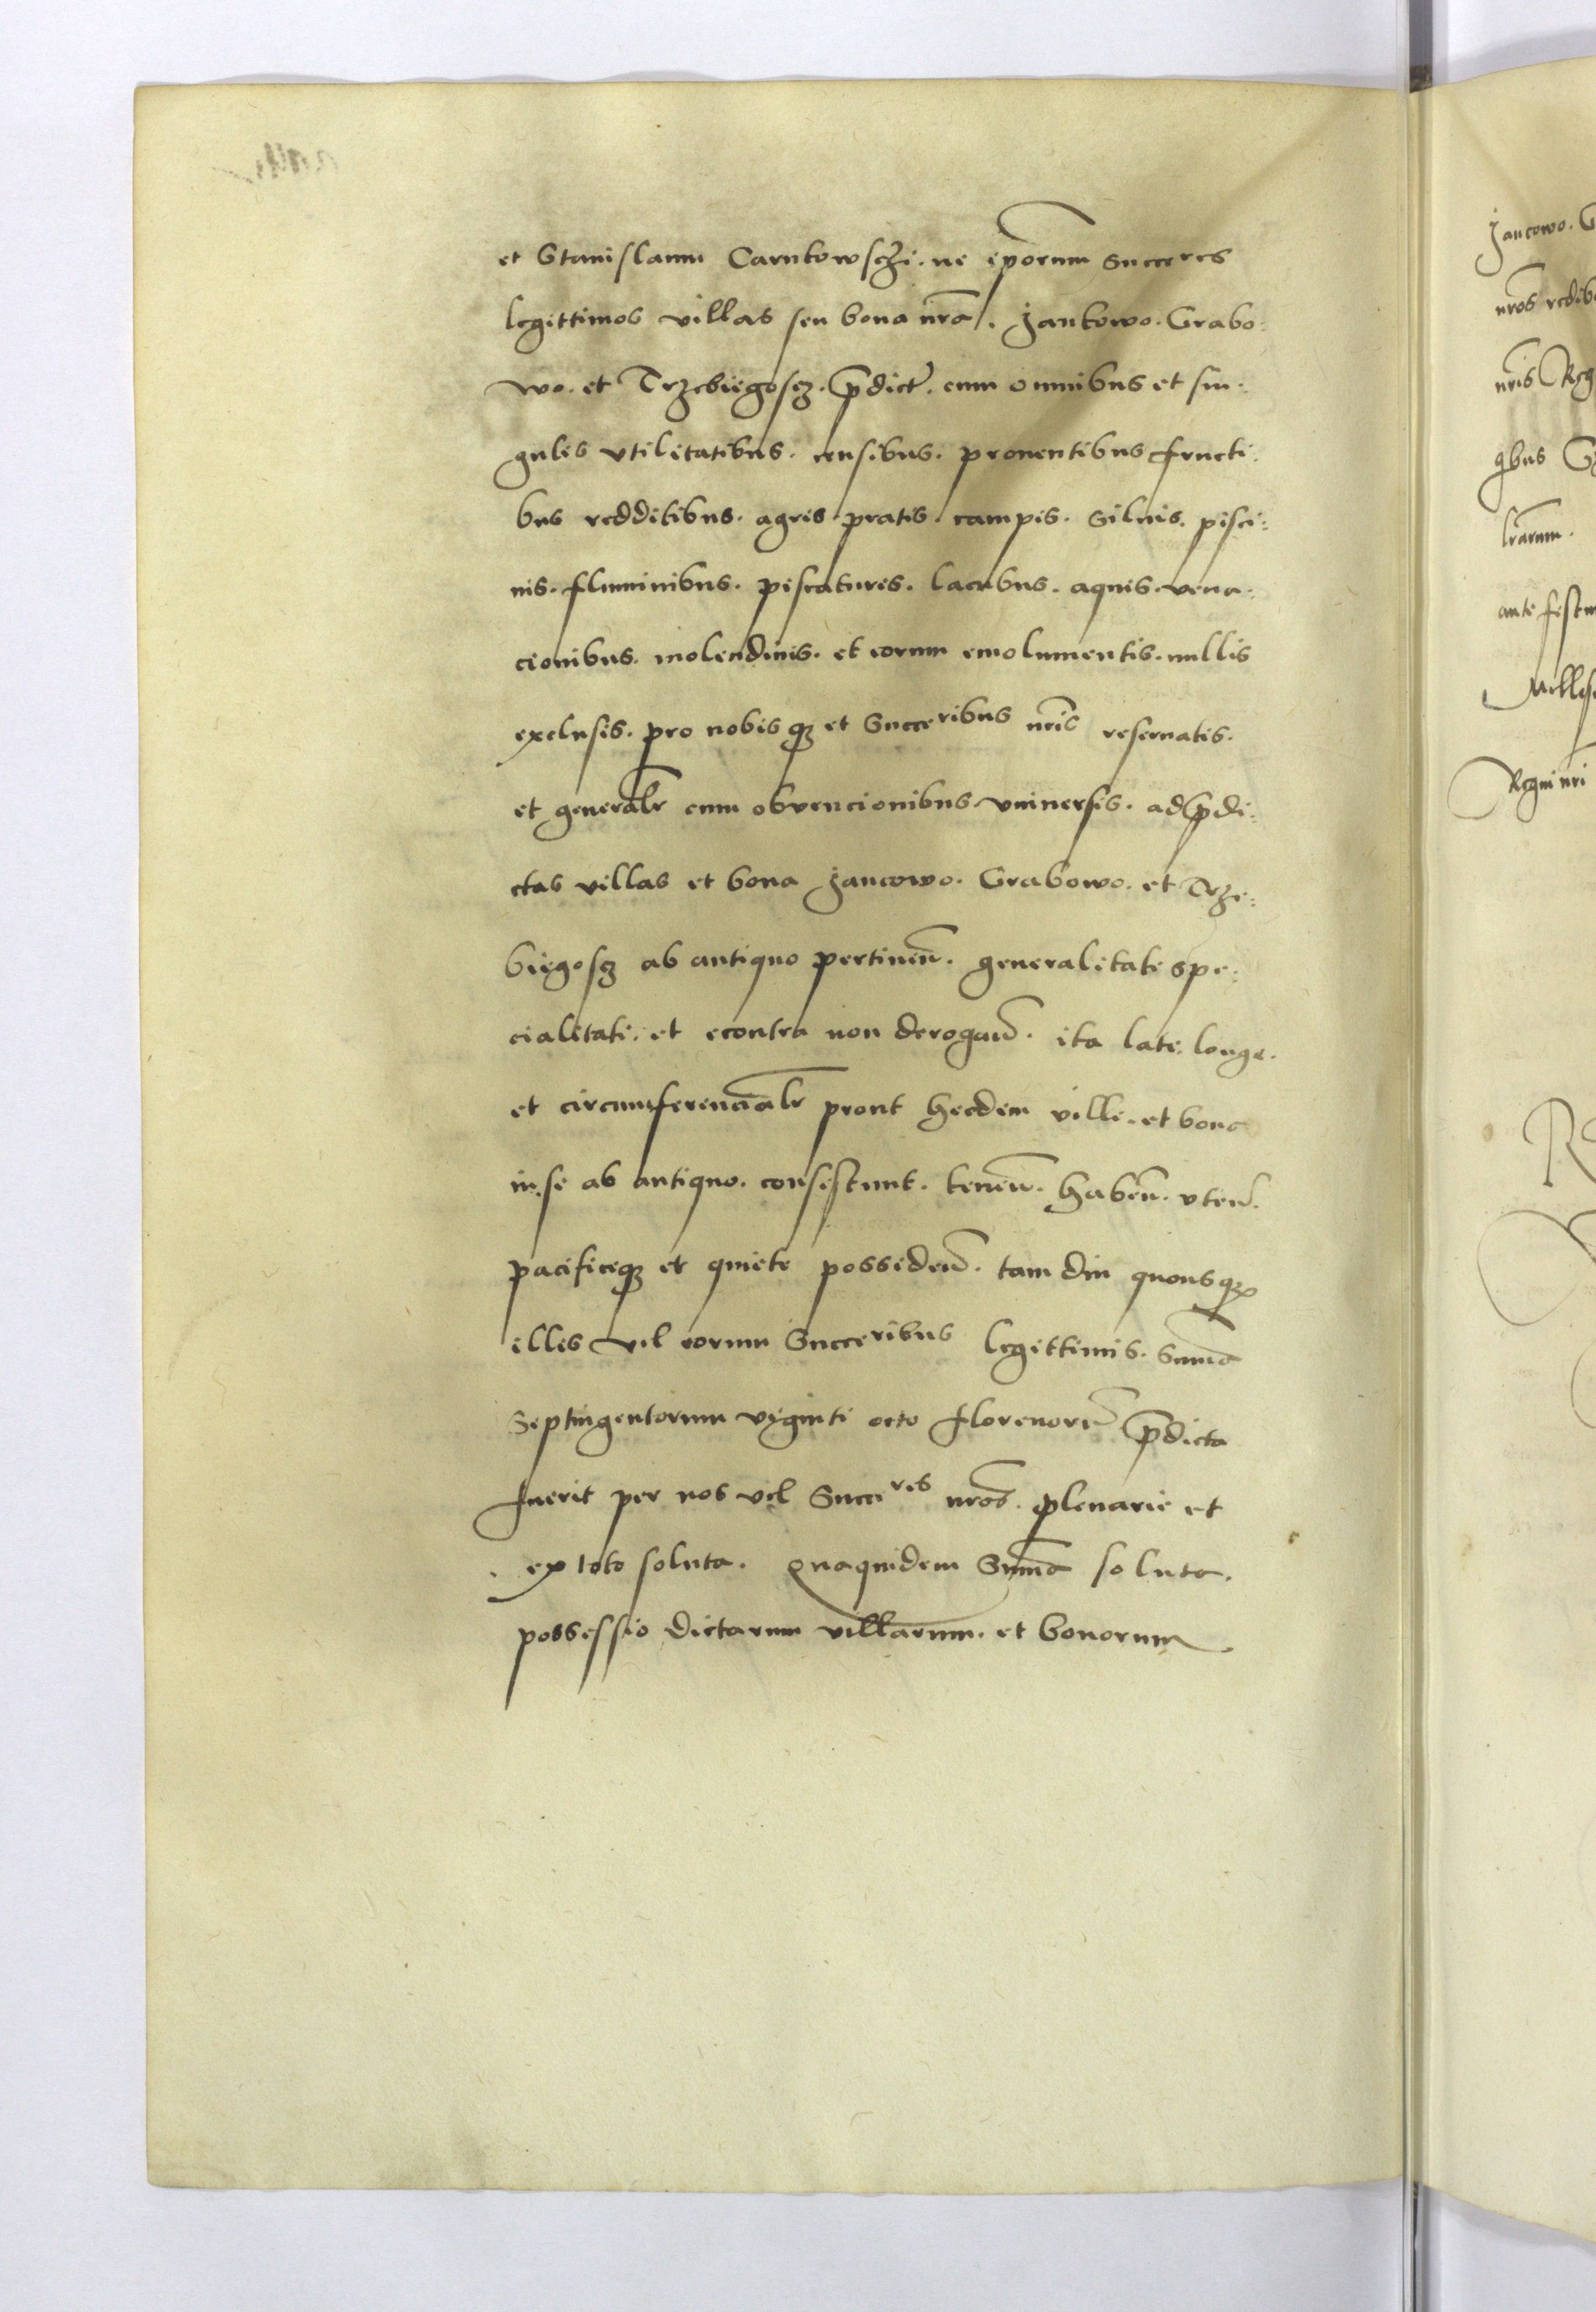 et Stanislaum Carnkowsczki. ne ip̄orum Succeres
legittimos villas seu bona nr̄a. Jankowo. Grabo:
wo. et Trzebiegoscz. p̄dict. cum omnibus et sin:
gulis vtilitatibus. censibus. prouentibus fructi:
bus redditibus. agris. pratis. campis. Siluis. pisci:
nis. fluminibus. piscaturis. lacubus. aquis. vena:
cionibus. molendinis. et eorum emolumentis. nullis
exclusis. pro nobisq3 et Succeribus nr̄is reseruatis.
et generalr̄ cum obvencionibus vniuersis. ad p̄di:
ctas villas et bona Jancowo. Grabowo. et Trze:
biegoscz ab antiquo pertinen̄. generalitate spe:
cialitati. et econtra non derogan̄. ita late. longe.
et circumferencialr̄ prout heedem ville. et bona
in se ab antiquo. consistunt. tenen̄. haben̄. vten̄.
pacificeq3 et quiete possiden̄. tam diu quousq3
illis vel eorum Succeribus legittimis. Sum̄a
Septingentorum vyginti octo florenorū p̄dicta
fuerit per nos vel Succeres nr̄os. plenarie et
ex toto soluta. Quaquidem Sum̄a soluta.
possessio dictarum villarum. et bonorum
Jancowo. G
nr̄os redib
nr̄is Reg
qbus
lr̄arum.
ante festu
Milles
Regni nr̄i